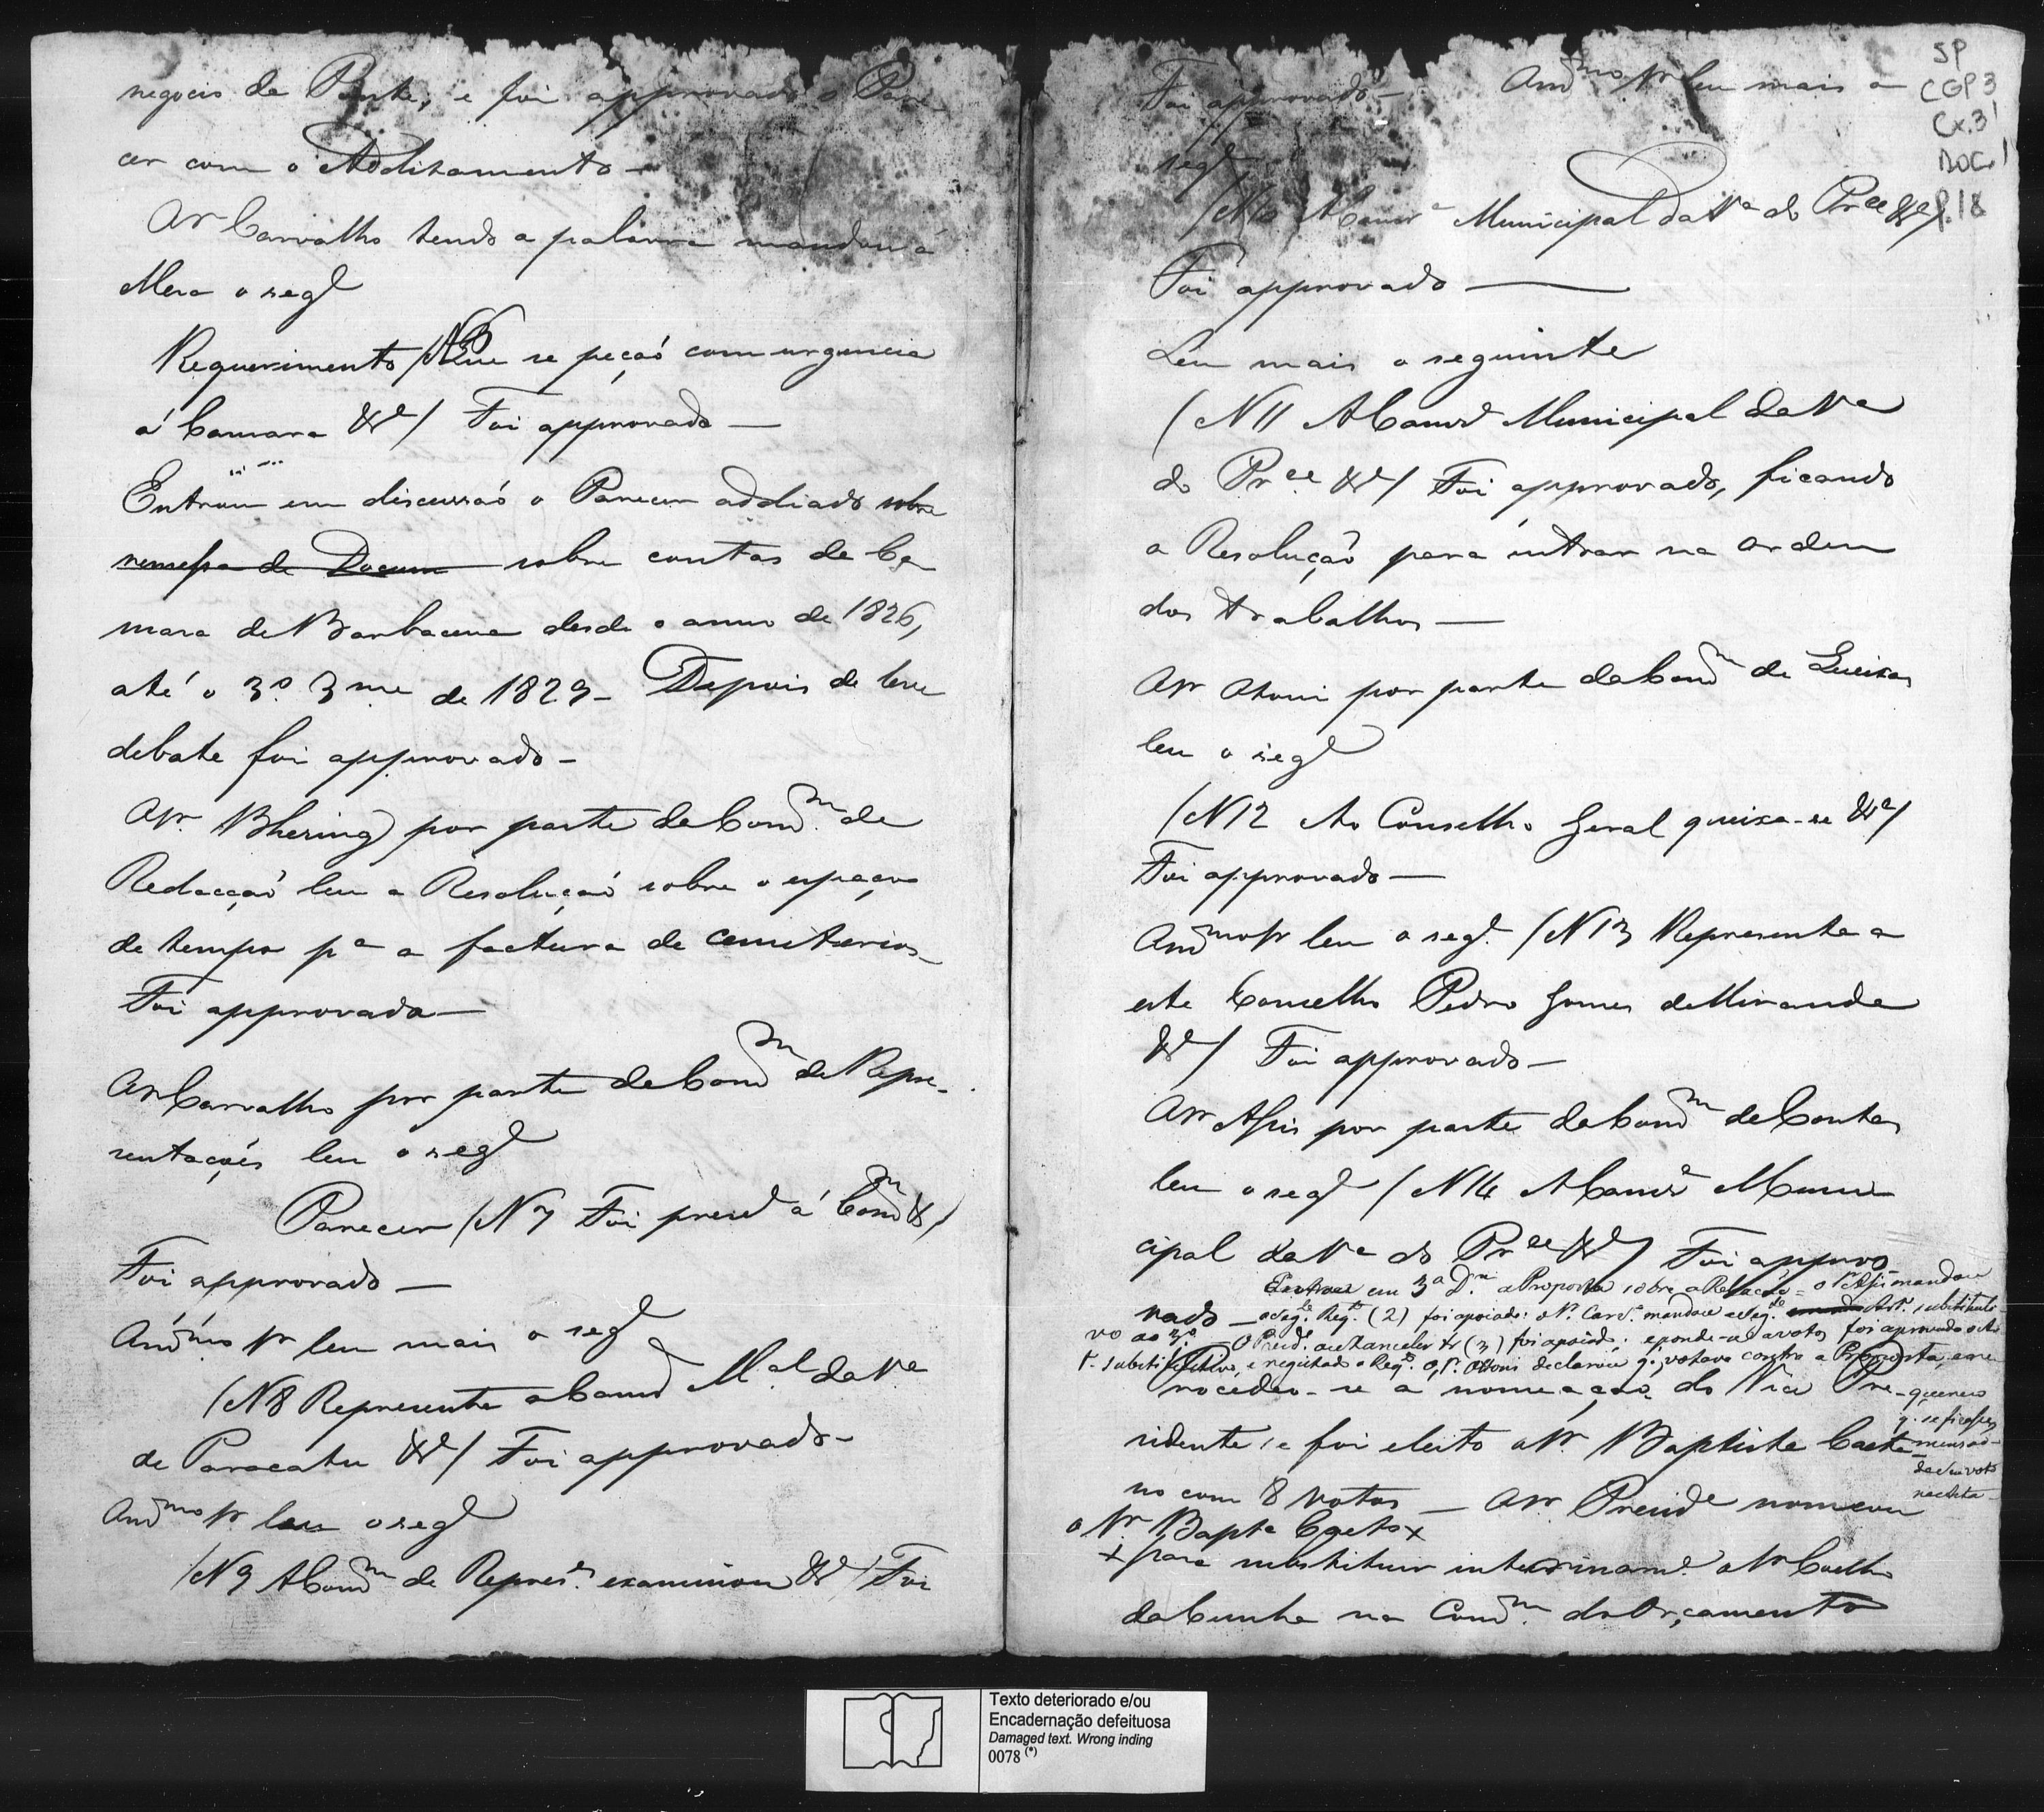 negocio da Ponte, e foi approvado o Pare
cer com o Additamento —
O Sr Carvalho tendo a palavra mandou á
Mesa o seg.e
Requerimento /N 6 Que se peçaó com urgencia
á Camara &a/ Foi approvado —
Entrou em discussaó o Parecer addiado sobre
remessa de Docum sobre contas da Ca
mara de Barbacena desde o anno de 1826,
até o 3º 3me de 1829 — Depois de leve
debate foi approvado —
O Sr. Bhering por parte da Comm. de
Redacçaó leu a Resoluçaó sobre o espaço
de tempo pa a factura de Cemiterios
Foi approvada —
O Sr Carvalho por parte da Comm de Repre-
sentaçoẽs leu o seg.e
Parecer /N 7 Foi presd.e á Comm &a/
Foi approvado —
O mmo Sr leu mais o seg.e
/N 8 Representa a Camr.a M.al da Va
de Paracatu &a/ Foi approvado —
O mmo Sr leu o seg.e
/N 9 A Comm de Repres. examinou &a/ Foi
Foi approvado — O mmo Sr leu mais o
seg.e
/N 10 A Camr.a Municipal da Va do Pr.ce &a/
Foi approvado —
Leu mais o seguinte
/N 11 A Camr.a Municipal da Va
do Pr.ce &a/ Foi approvado, ficando
a Resoluçaó para intrar na ordem
dos trabalhos —
O Sr Otoni por parte da Comm de Queixas
leu o seg.e
/N 12 Ao Conselho Geral queixa-se &a/
Foi approvado —
O mmo Sr leu o seg.e /N 13 Representa a
este Conselho Pedro Gomes de Miranda
&a/ Foi approvado —
O Sr Assis por parte da Comm de Contas
leu o seg.e /N 14 A Camr.a Muni
cipal da Va do Pr.ce &a/ Foi appro
Entrou em 3a D. a Proposta sobre a Relação = o Sr Assis mandou
vado — o seg.e Req.to (2) foi apoiado: o Sr. Carv.o mandou o seg.e Art. substituti-
vo ao 3º — O Presid.e (3) foi apoiado: e pondo-se a votos foi aprovado o Ar
t. substitutivo, e regeitado o Req.to O Sr. Ottoni declarou q. votava contra a Proposta, e re
quereo
q. se fizesse
mensaó
do seu voto
na Acta —
Procedeo-se a nomeaçaó do Vice Pre-
sidente, e foi eleito o Sr. Baptista Caeta
no com 8 votos — O Sr. Presid.e nomeou
o Sr Bapta Caeto x
x para substituir interinam.e o Sr Coelho
da Cunha na Comm. do Orçamento
SP
CGP 3
Cx. 31
DOC. 1
p. 18
Texto deteriorado e/ou
Encadernação defeituosa
Damaged text. Wrong inding
0078 (*)